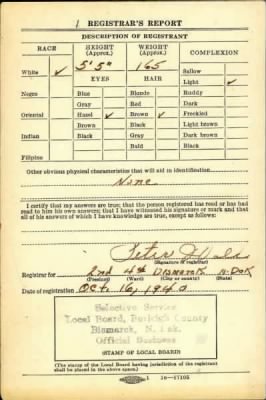 1 REGISTRAR'S REPORT
DESCRIPTION OF REGISTRANT
RACE HEIGHT (Approx.) WEIGHT (Approx.) COMPLEXION
White ✓ 5' 5" 165 Sallow
EYES HAIR Light ✓
Negro Blue Blonde Ruddy
Gray Red Dark
Oriental Hazel ✓ Brown ✓ Freckled
Brown Black Light brown
Indian Black Gray Dark brown
Bald Black
Filipino
Other obvious physical characteristics that will aid in identification
None
I certify that my answers are true; that the person registered has read or has had
read to him his own answers; that I have witnessed his signature or mark and that
all of his answers of which I have knowledge are true, except as follows:
Peter
(Signature of registrar)
Registrar for 2nd 4th Bismarck N-Dak
(Precinct) (Ward) (City or county) (State)
Date of registration Oct. 16, 1940
Selective Service
Local Board, Burleigh County
Bismarck, N. Dak.
Official Business
STAMP OF LOCAL BOARD
(The stamp of the Local Board having jurisdiction of the registrant
shall be placed in the above space.)
16-17105